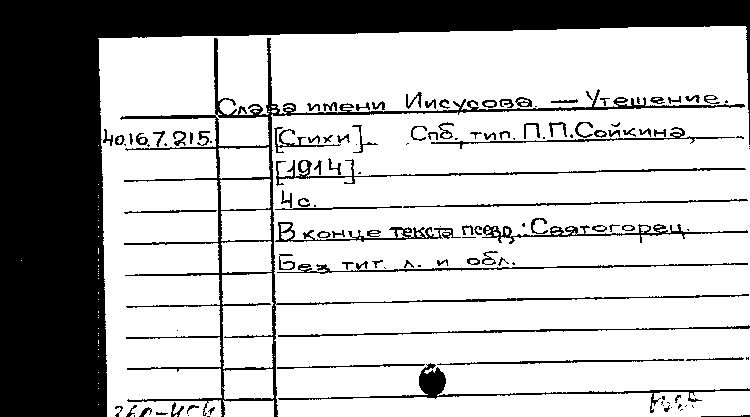 Слава имени Иисусова. — Утешение.
40.16.7.215. [Стихи]. Спб., тип. П.П.Сойкина,
[1914].
4с.
В конце текста псевд.: Святогорец.
Без тит. л. и обл.